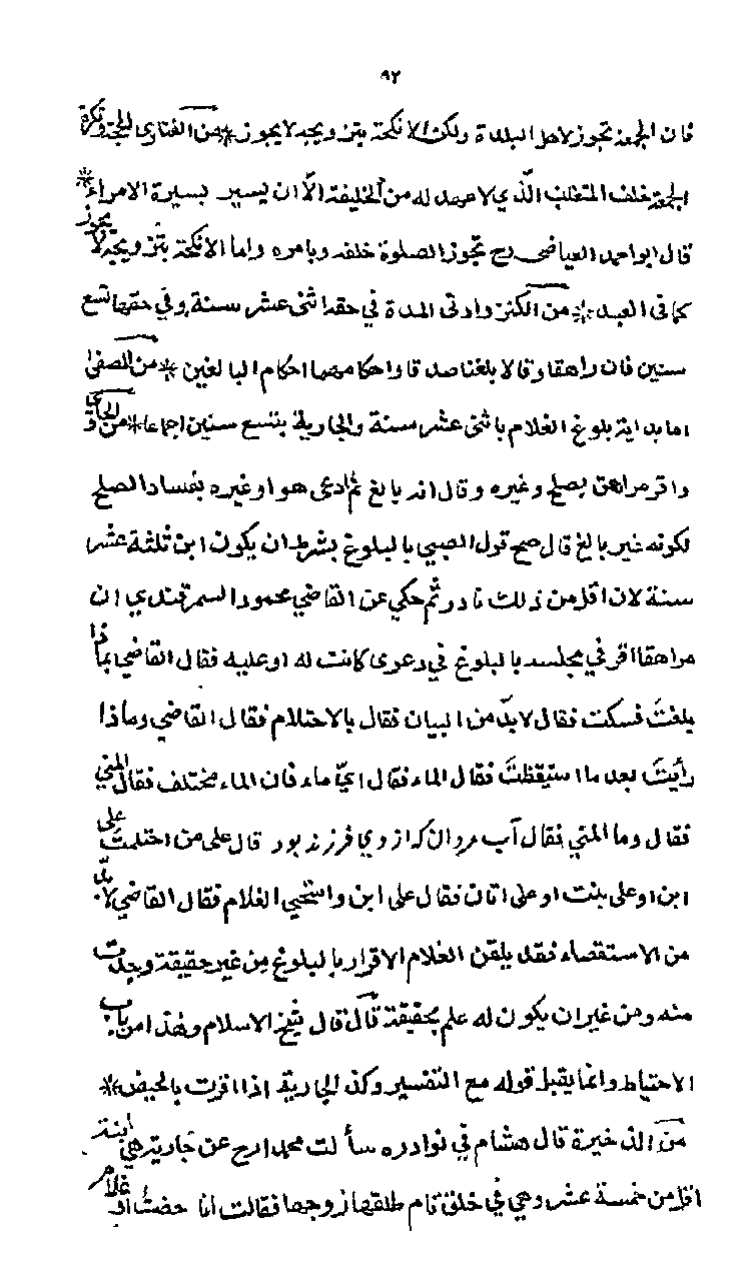 ٩٢
فان الجمعة تجوز لاهل البلدة ولكن الانكحة بتزويجه لا يجوز * من الفتاوى الحجة وتكره
الجمعة خلف المتغلب الّذي لا عهد له من الخليفة الّا ان يسير بسيرة الامراء *
قال ابو احمد العياضي رح تجوز الصلوة خلفه وبامره واما الانكحة بتزويجه لا يجوز
كما في العبد * من الكنز وادنى المدة في حقه اثنى عشر سنة وفي حقها تسع
سنين فان راهقا وقالا بلغنا صدقا واحكامهما احكام البالغين * من الصغرى
اما بداية بلوغ الغلام باثنى عشر سنة والجارية بتسع سنين اجماعا * من
واقر مراهق بصلح وغيره وقال انه بالغ ثم ادعى هو او غيره بفساد الصلح
لكونه غير بالغ قال صح قول الصبي بالبلوغ بشرط ان يكون ابن ثلثة عشر
سنة لان اقل من ذلك نادر ثم حكي عن القاضي محمود السمرقندي ان
مراهقا اقر في مجلسه بالبلوغ في دعوى كانت له او عليه فقال القاضي بماذا
بلغتَ فسكت فقال لا بدّ من البيان فقال بالاحتلام فقال القاضي وماذا
رأيتَ بعد ما استيقظتَ فقال الماء فقال ايّ ماء فان الماء مختلف فقال المني
فقال وما المني فقال آب مردان كه از وي فرزند بود قال على من احتلمت على
ابن او على بنت او على اتان فقال على ابن واستحيى الغلام فقال القاضي لا بدّ
من الاستقصاء فقد يلقن الغلام الاقرار بالبلوغ من غير حقيقة وجدت
منه ومن غير ان يكون له علم بحقيقة قال قال شيخ الاسلام وهذا من باب
الاحتياط وانما يقبل قوله مع التفسير وكذ الجارية اذا اقرت بالحيض *
من الذخيرة قال هشام في نوادره سألت محمدا رح عن جارية هي ابنة
اقل من خمسة عشر وهي في خلق تام طلقها زوجها فقالت انا حضتُ او غلام